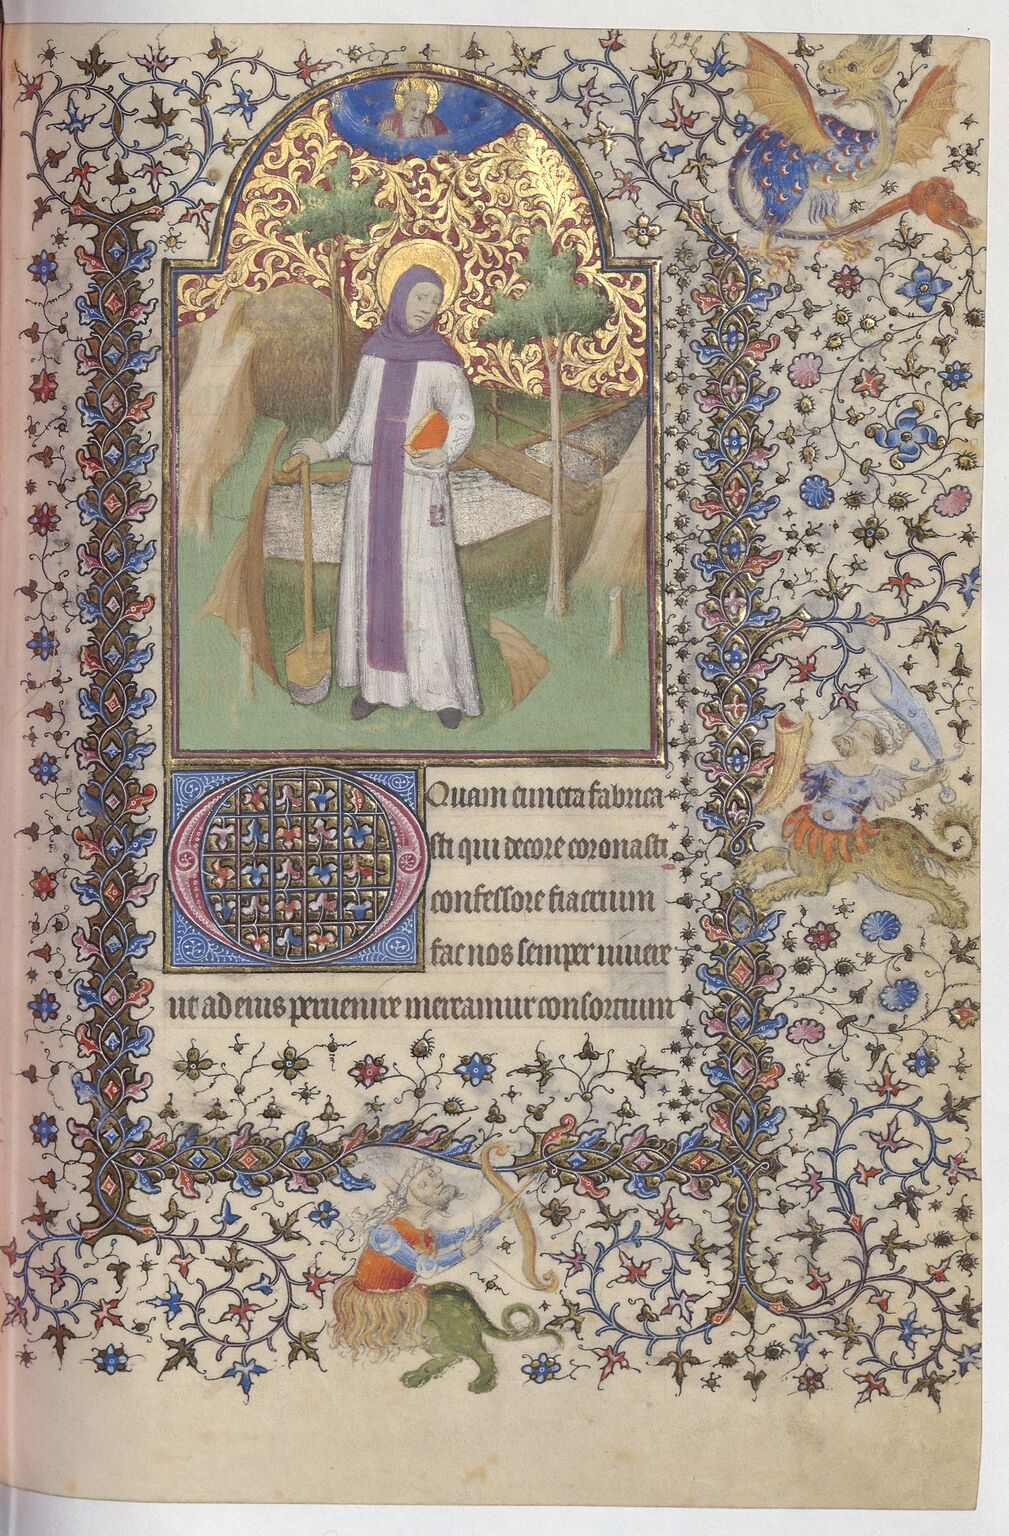 226
Quam cuncta fabrica
sti qui decore coronasti
confessore fiacrium
fac nos semper uiuere
ut ad eius peruenire mereamur consortium